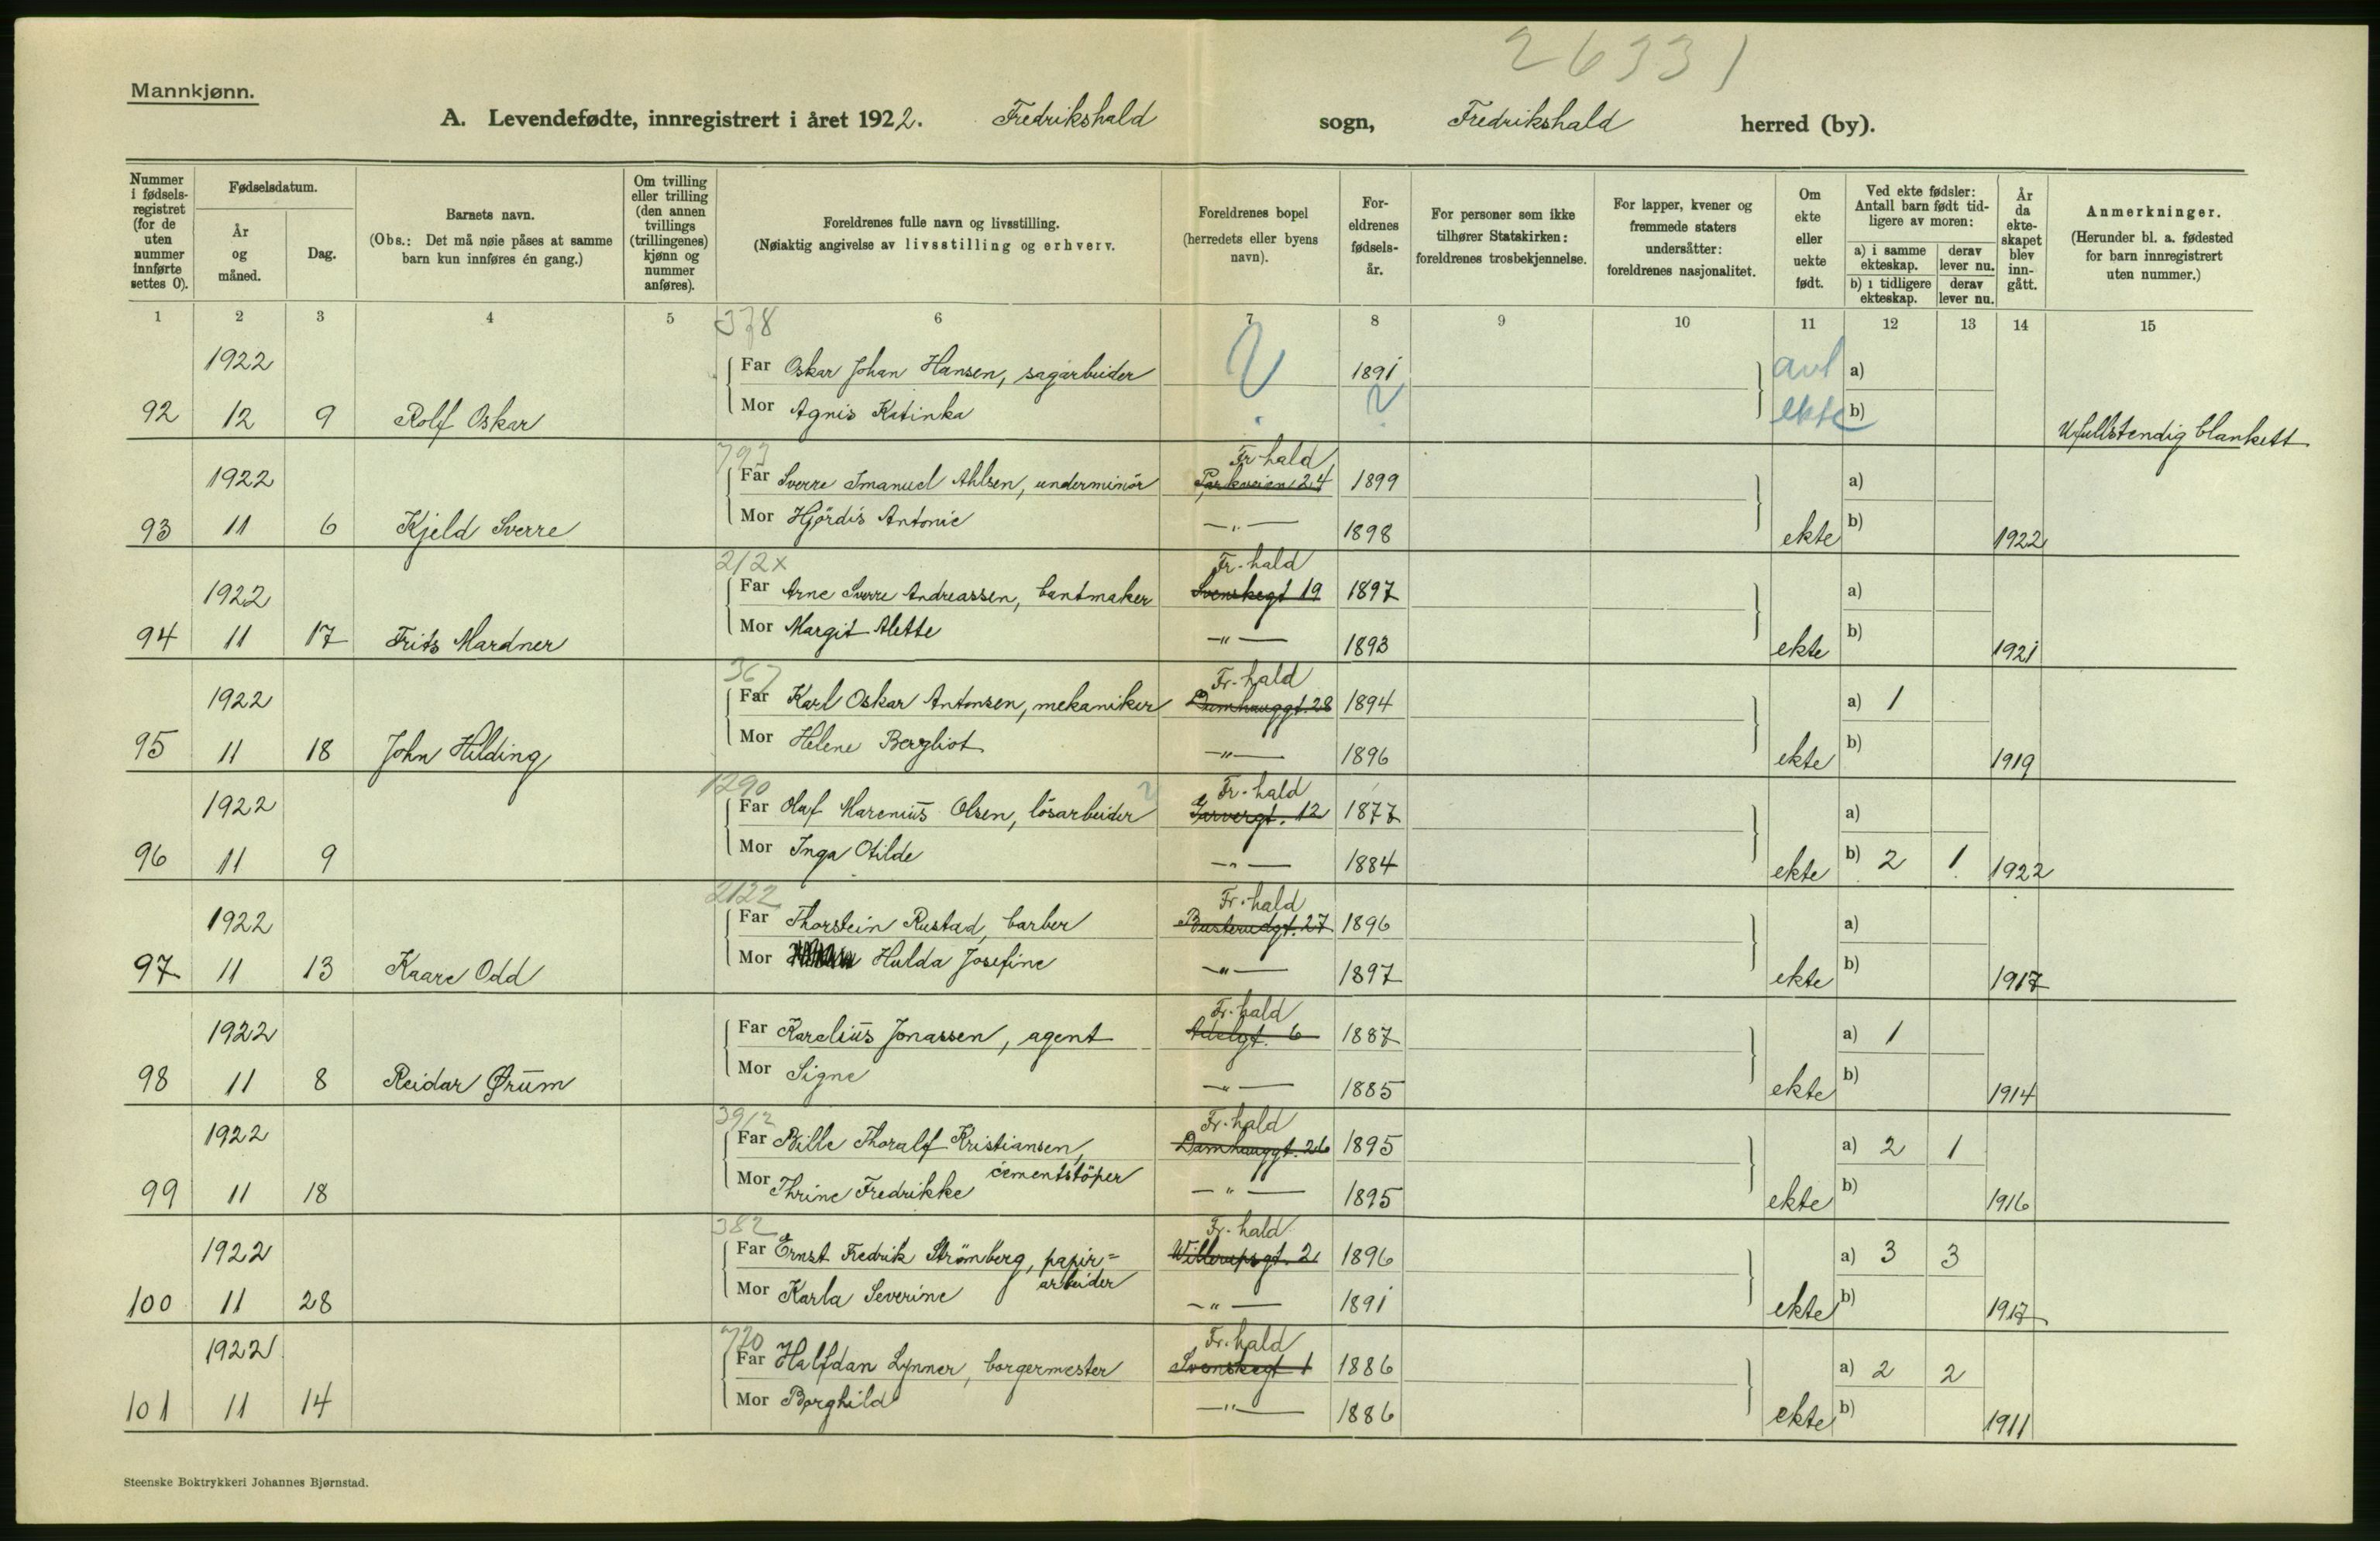 26331
Mannkjønn.
A. Levendefødte, innregistrert i året 1922. Fredrikshald sogn, Fredrikshald herred (by).
Nummer i fødsels-registret (for de uten nummer innførte settes 0).
Fødselsdatum.
År og måned.
Dag.
Barnets navn.
(Obs.: Det må nøie påses at samme barn kun innføres én gang.)
Om tvilling eller trilling (den annen tvillings (trillingenes) kjønn og nummer anføres).
Foreldrenes fulle navn og livsstilling.
(Nøiaktig angivelse av livsstilling og erhverv.
Foreldrenes bopel (herredets eller byens navn).
For-eldrenes fødsels-år.
For personer som ikke tilhører Statskirken: foreldrenes trosbekjennelse.
For lapper, kvener og fremmede staters undersåtter: foreldrenes nasjonalitet.
Om ekte eller uekte født.
Ved ekte fødsler: Antall barn født tid-ligere av moren:
a) i samme ekteskap.
derav lever nu.
b) i tidligere ekteskap.
derav lever nu.
År da ekte-skapet blev inn-gått.
Anmerkninger.
(Herunder bl. a. fødested for barn innregistrert uten nummer.)
1 2 3 4 5 6 7 8 9 10 11 12 13 14 15
378
1922 Far Oskar Johan Hansen, sagarbeider ? 1891 avl a)
92 12 9 Rolf Oskar Mor Agnis Katinka ? ekte b) Ufullstendig blankett
793 Fr-hald
1922 Far Sverre Imanuel Ahlsen, underminör Parkveien 24 1899 a)
93 11 6 Kjeld Sverre Mor Hjördis Antonie —„— 1898 ekte b) 1922
212x Fr.hald
1922 Far Arne Sverre Andreassen, bantmaker Svenskegt 19 1897 a)
94 11 17 Frits Mardner Mor Margit Alette —„— 1893 ekte b) 1921
367 Fr.hald
1922 Far Karl Oskar Antonsen, mekaniker Damhauggt. 28 1894 a) 1
95 11 18 John Hilding Mor Helene Bergliot —„— 1896 ekte b) 1919
1290 Fr.hald
1922 Far Olaf Marenius Olsen, lösarbeider ? Garvergt. 12 1877 a)
96 11 9 Mor Inga Otilde —„— 1884 ekte b) 2 1 1922
2122 Fr.hald
1922 Far Thorstein Rustad, barber Busterudgt. 27 1896 a)
97 11 13 Kaare Odd Mor Hulda Josefine —„— 1897 ekte b) 1917
Fr.hald
1922 Far Karelius Jonassen, agent Adelgt. 6 1887 a) 1
98 11 8 Reidar Ørum Mor Signe —„— 1885 ekte b) 1914
3912 Fr.hald
1922 Far Bille Thoralf Kristiansen, Damhauggt. 26 1895 a) 2 1
cementstöper
99 11 18 Mor Thrine Fredrikke —„— 1895 ekte b) 1916
382 Fr.hald
1922 Far Ernst Fredrik Strömberg, papir= 2 1896 a) 3 3
arbeider
100 11 28 Mor Karla Severine —„— 1891 ekte b) 1917
720 Fr.hald
1922 Far Halfdan Lynner, borgermester Svenskegt 1 1886 a) 2 2
101 11 14 Mor Borghild —„— 1886 ekte b) 1911
Steenske Boktrykkeri Johannes Bjørnstad.